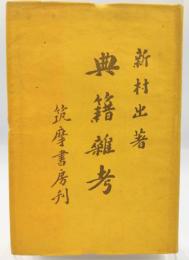 新村出著
典籍雜考
筑摩書房刊